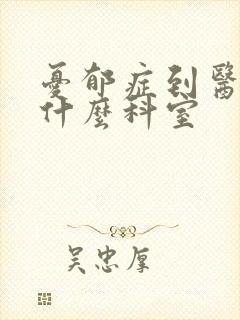 憂郁症到醫
什麼科室
吴忠厚